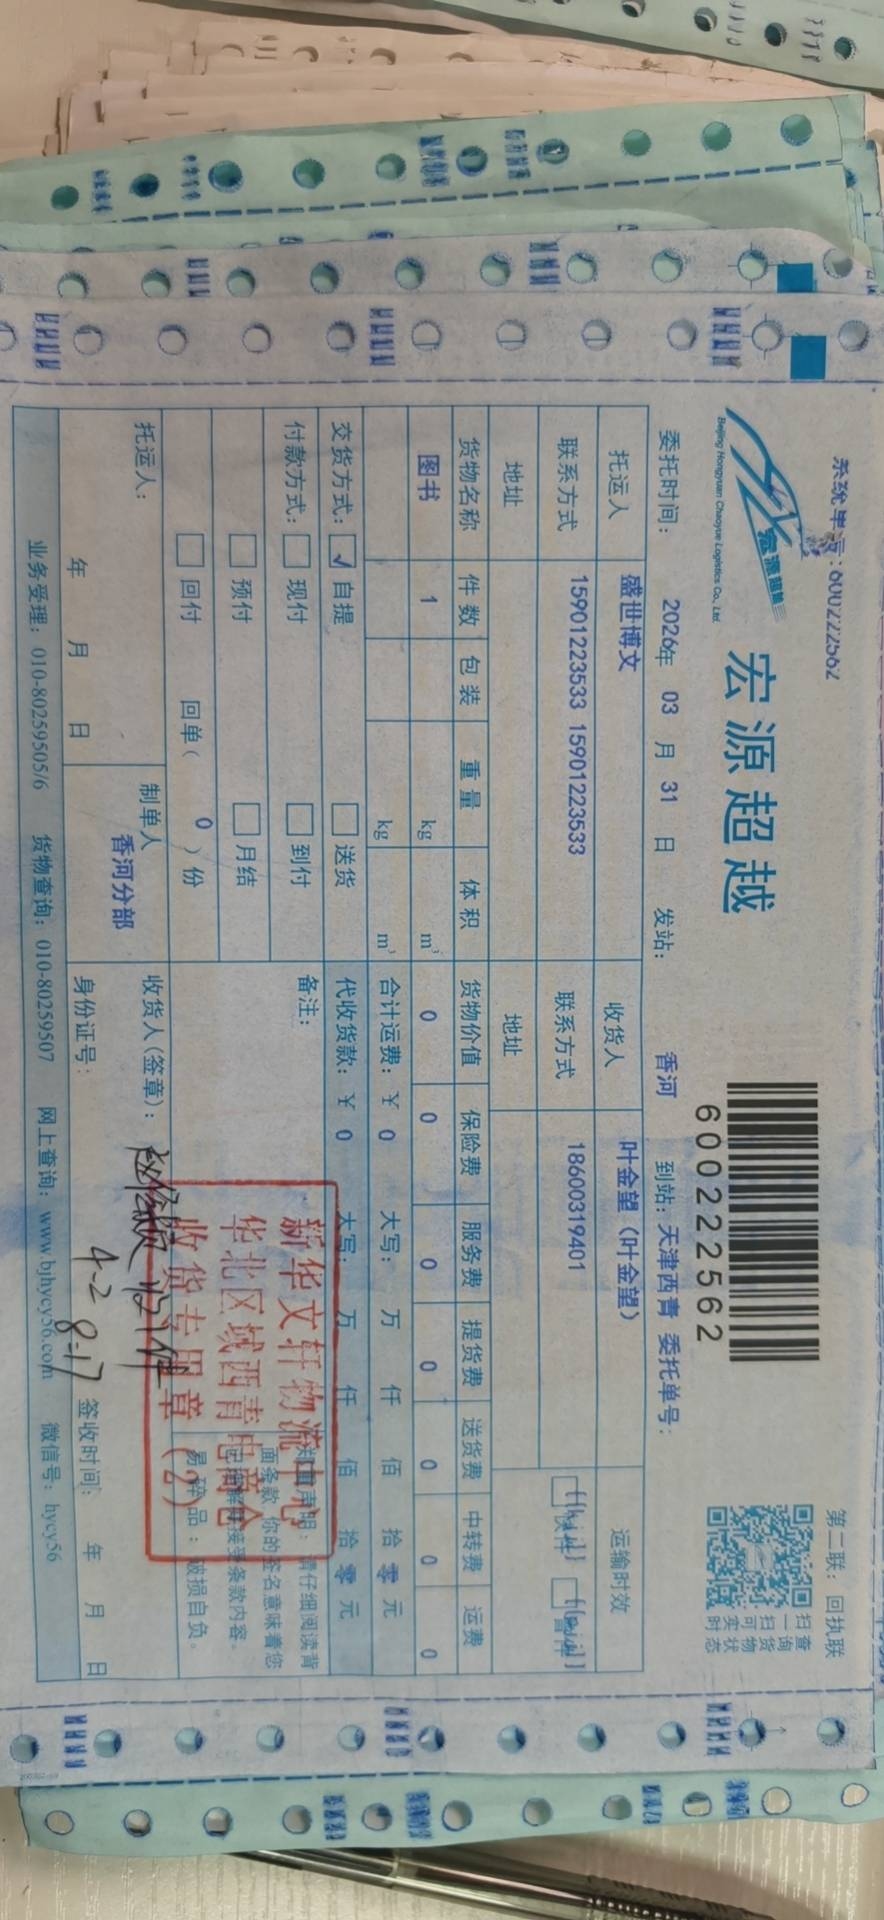 系统单号:600222562
第二联：回执联
宏源超越
Beijing Hongyuan Chaoyue Logistics Co., Ltd.
600222562
扫一扫可实时
查询货物状态
委托时间： 2026年 03 月 31 日 发站： 香河 到站：天津西青 委托单号：
托运人 盛世博文 收货人 叶金望（叶金望） 运输时效
联系方式 15901223533 15901223533 联系方式 18600319401
地址 地址
货物名称 件数 包装 重量 体积 货物价值 保险费 服务费 提货费 送货费 中转费 运费
图书 1 kg m³ 0 0 0 0 0 0 0
kg m³ 合计运费：￥ 0 大写： 万 仟 佰 拾 零 元
交货方式： ✓ 自提 送货 代收货款：￥ 0 大写： 万 仟 佰 拾 零 元
付款方式： 现付 到付 备注：
预付 月结
回付 回单（ 0 ）份
声明：请仔细阅读背
面条款 你的签名意味着您
接受条款内容。
易碎品：破损自负。
新华文轩物流中心
华北区域西青电商仓
收货专用章（2）
托运人： 制单人 收货人（签章）：
香河分部
收1件
4-2 8:17
年 月 日 身份证号： 签收时间： 年 月 日
业务受理：010-80259505/6 货物查询：010-80259507 网上查询：www.bjhycy56.com 微信号：hycy56